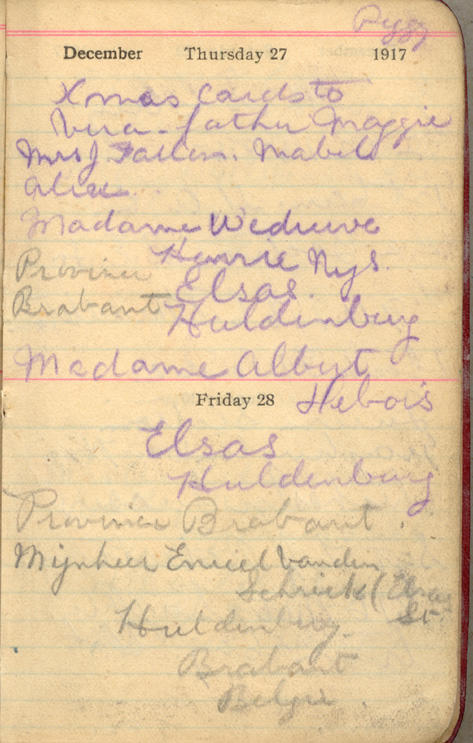 Peggy
December Thursday 27 1917
Xmas Cards to
Vera. father Maggie
Mrs J Fallon. Mabel
Alice
Madame Wedruwe
Henrie Nys.
Province Elsas.
Brabant Huldenburg
Madame Albyt
Friday 28 Hebois
Elsas
Huldenburg
Province Brabant.
Mijnheer Emiel Vanden
Schrick (Elsas
St.
Huldenburg.
Brabant
Belgie